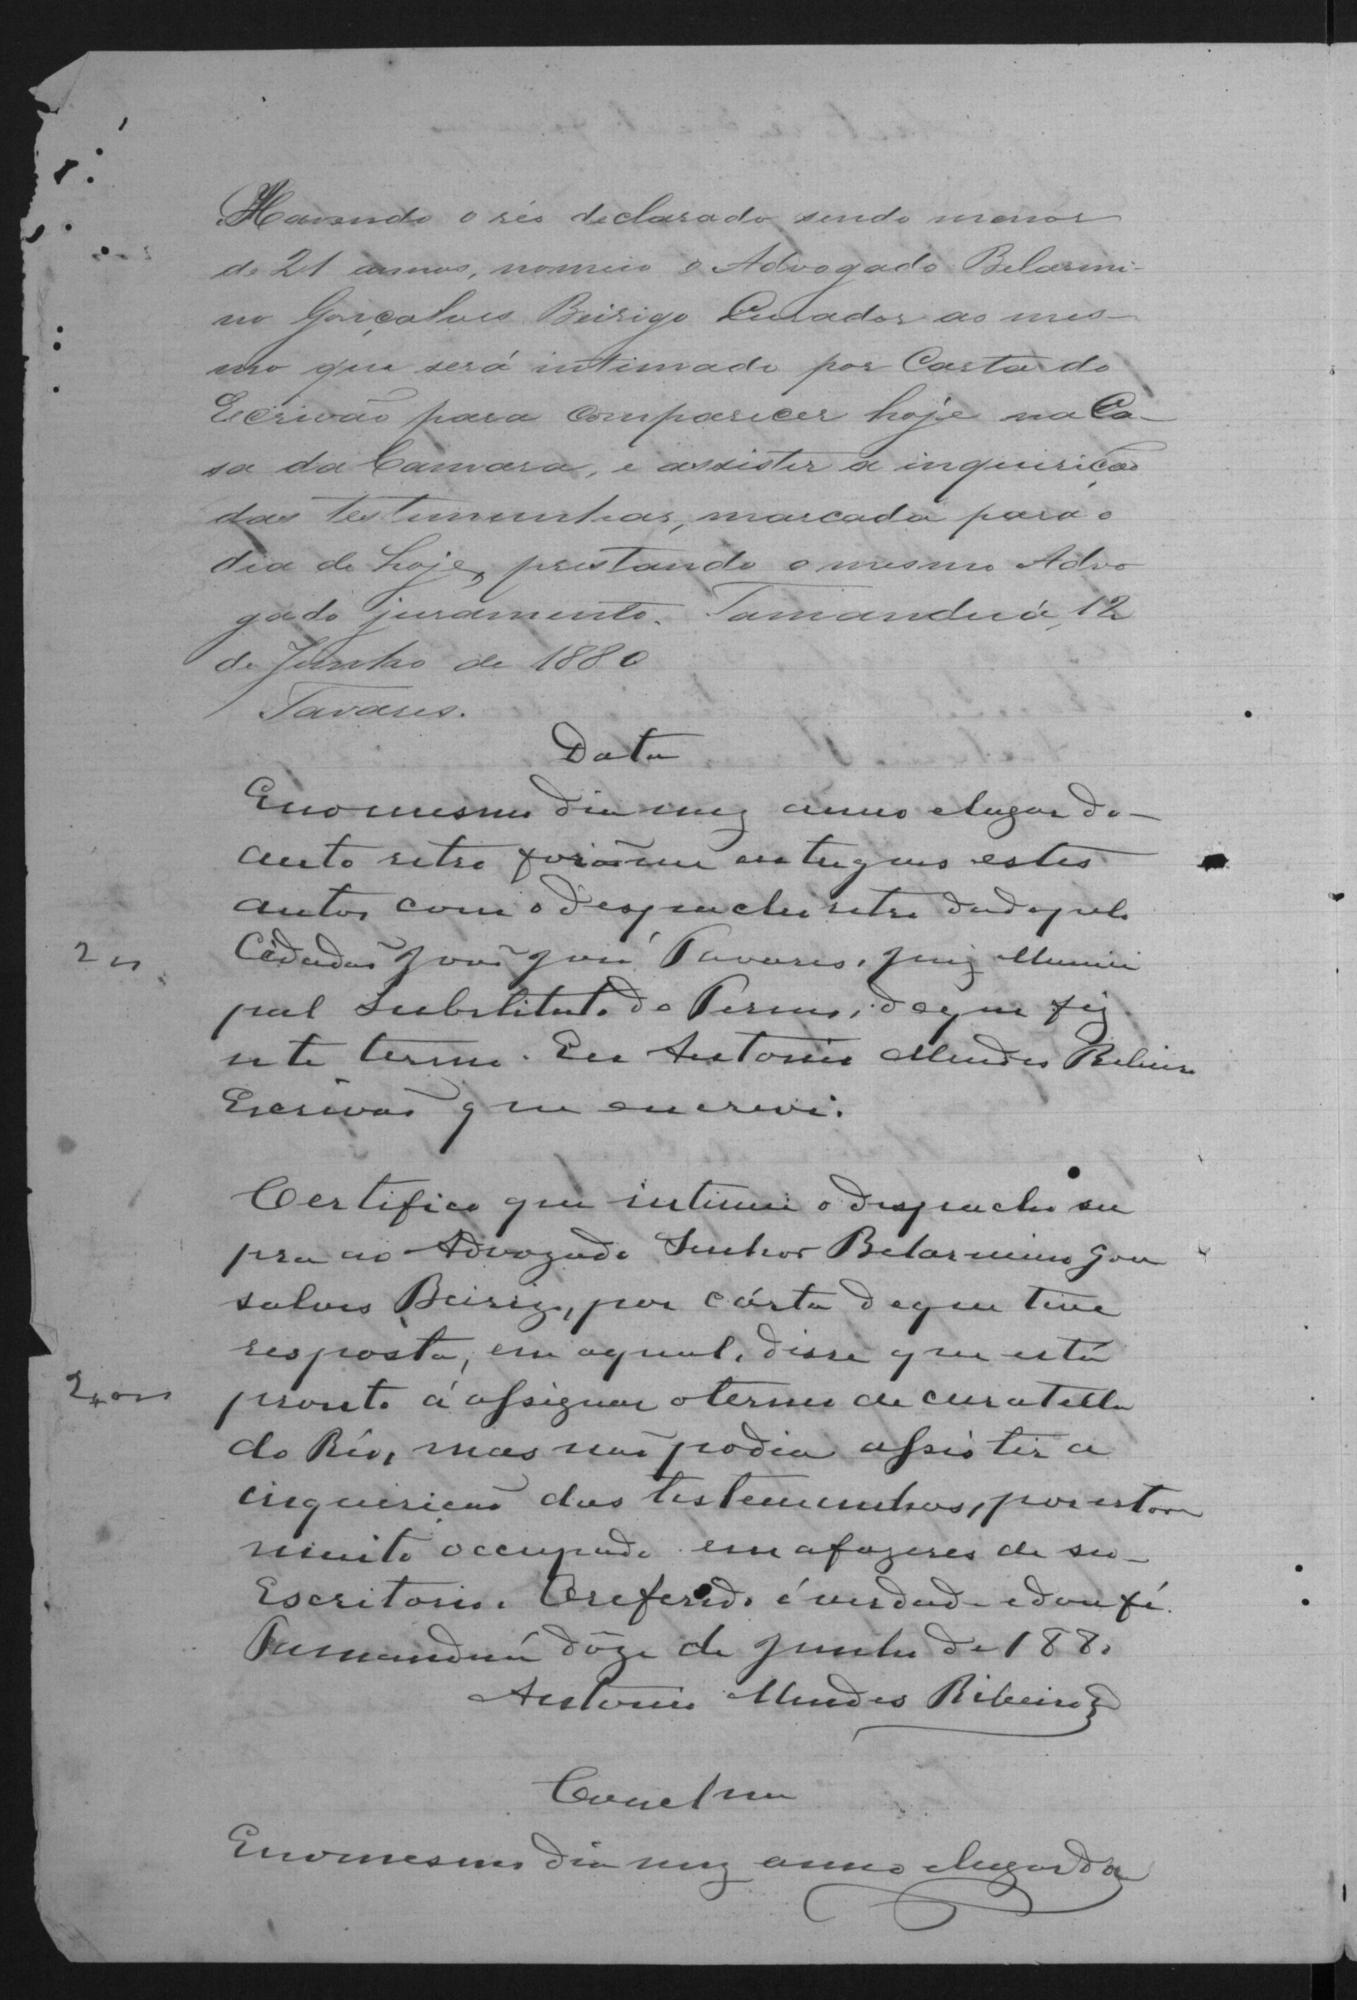 Havendo o réo declarado sendo menor
de 21 annos, nomeio o Advogado Belarmi-
no Gonçalves Beirigo Curador ao mes-
mo que será intimado por Carta do
Escrivão para comparecer hoje na Ca-
sa da Camara, e assistir a inquirição
das testimunhas, marcada para o
dia de hoje, prestando o mesmo Advo
gado juramento. Tamanduá, 12
de Junho de 1880
Tavares.
Data
E no mesmo dia mez anno e lugar do-
auto retro forão me entregues estes
autos com o despacho retro dado pelo
Cidadão João José Tavares, Juiz Munici
pal Substituto do Termo, de que fiz
este termo. Eu Antonio Mendes Ribeiro
Escrivão que escrevi.
Certifico que intimei o despacho su
pra ao Advogado Senhor Belarmino Gon
salves Beirigo, por cárta de que tive
resposta, em a qual, disse que está
pronto á assignar o termo de curatella
do Réo, mas não podia assistir a
inquirição das testemunhas, por estar
muito occupado em afazeres de seu-
Escritorio. O referido é verdade e dou fé.
Tamanduá dôze de Junho de 1880
Antonio Mendes Ribeiro
Conclusão
E no mesmo dia mez anno e lugar da